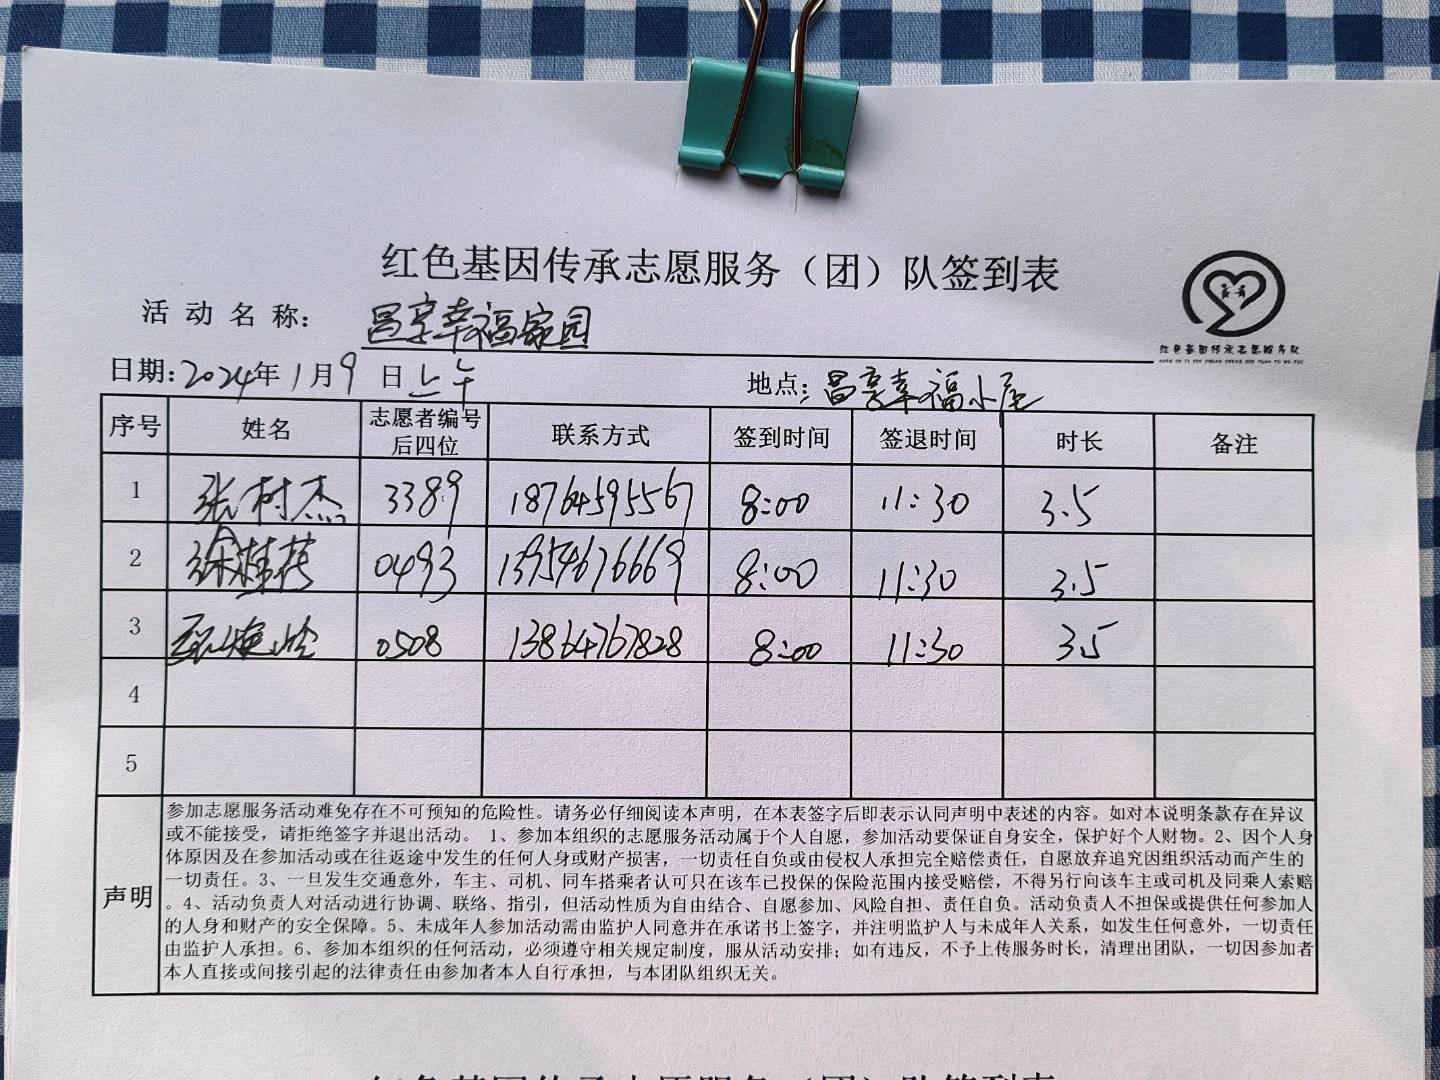 红色基因传承志愿服务（团）队签到表
活动名称： 昌享幸福家园
红色基因传承志愿服务队
日期：2024年1月9日上午 地点：昌享幸福小屋
序号 姓名 志愿者编号后四位 联系方式 签到时间 签退时间 时长 备注
1 张树杰 3389 18764595567 8:00 11:30 3.5
2 徐桂芬 0493 13954676669 8:00 11:30 3.5
3 0508 13864767828 8:00 11:30 3.5
4
5
声明
参加志愿服务活动难免存在不可预知的危险性。请务必仔细阅读本声明，在本表签字后即表示认同声明中表述的内容。如对本说明条款存在异议
或不能接受，请拒绝签字并退出活动。 1、参加本组织的志愿服务活动属于个人自愿，参加活动要保证自身安全，保护好个人财物。2、因个人身
体原因及在参加活动或在往返途中发生的任何人身或财产损害，一切责任自负或由侵权人承担完全赔偿责任，自愿放弃追究因组织活动而产生的
一切责任。3、一旦发生交通意外，车主、司机、同车搭乘者认可只在该车已投保的保险范围内接受赔偿，不得另行向该车主或司机及同乘人索赔
。4、活动负责人对活动进行协调、联络、指引，但活动性质为自由结合、自愿参加、风险自担、责任自负。活动负责人不担保或提供任何参加人
的人身和财产的安全保障。5、未成年人参加活动需由监护人同意并在承诺书上签字，并注明监护人与未成年人关系，如发生任何意外，一切责任
由监护人承担。6、参加本组织的任何活动，必须遵守相关规定制度，服从活动安排；如有违反，不予上传服务时长，清理出团队，一切因参加者
本人直接或间接引起的法律责任由参加者本人自行承担，与本团队组织无关。
红色基因传承志愿服务（团）队签到表